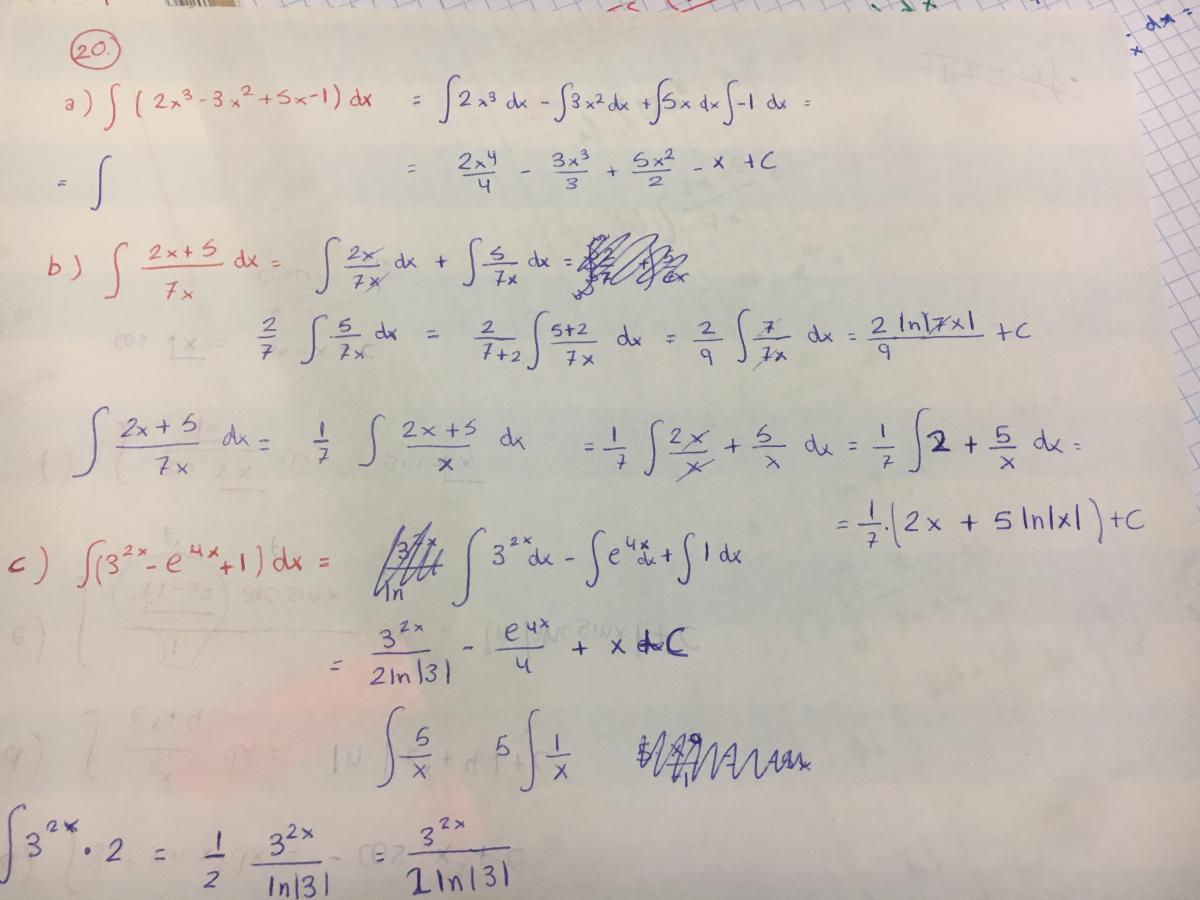 20.
a) ∫ (2x³-3x²+5x-1) dx = ∫2x³ dx - ∫3x² dx + ∫5x dx ∫-1 dx =
= ∫ = 2x⁴/4 - 3x³/3 + 5x²/2 - x + C
b) ∫ (2x+5)/7x dx = ∫ 2x/7x dx + ∫ 5/7x dx =
2/7 ∫ 5/7x dx = 2/(7+2) ∫ (5+2)/7x dx = 2/9 ∫ 7/7x dx = 2 ln|7x|/9 + C
∫ (2x+5)/7x dx = 1/7 ∫ (2x+5)/x dx = 1/7 ∫ 2x/x + 5/x dx = 1/7 ∫ 2 + 5/x dx =
= 1/7 · (2x + 5 ln|x|) + C
c) ∫(3²ˣ - e⁴ˣ + 1) dx = ∫ 3²ˣ dx - ∫ e⁴ˣ dx + ∫ 1 dx
= 3²ˣ/2ln|3| - e⁴ˣ/4 + x + C
∫ 5/x 5 ∫ 1/x
∫ 3²ˣ · 2 = 1/2 3²ˣ/ln|3| = 3²ˣ/2ln|3|